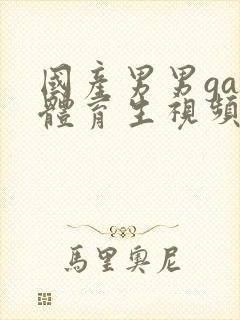 國產男男ga
體育生視頻
馬里奧尼